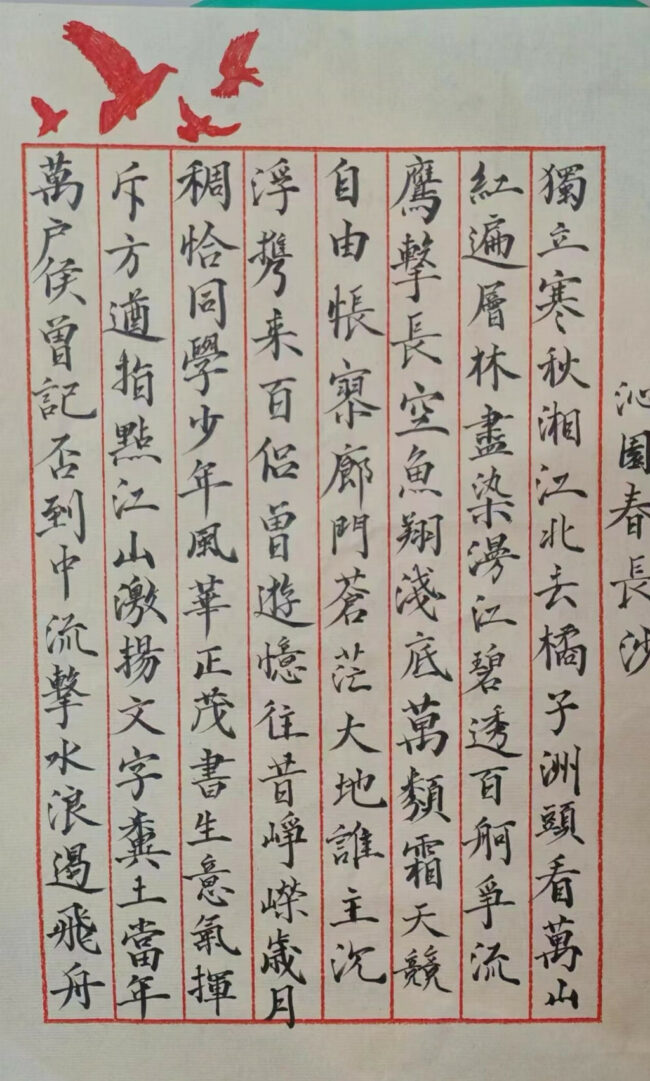 沁園春長沙
獨立寒秋湘江北去橘子洲頭看萬山
紅遍層林盡染漫江碧透百舸爭流
鷹擊長空魚翔淺底萬類霜天競
自由悵寥廊門蒼茫大地誰主沉
浮攜来百侶曾遊憶往昔崢嶸歲月
稠恰同學少年風華正茂書生意氣揮
斥方遒指點江山激揚文字糞土當年
萬户侯曾記否到中流擊水浪遏飛舟